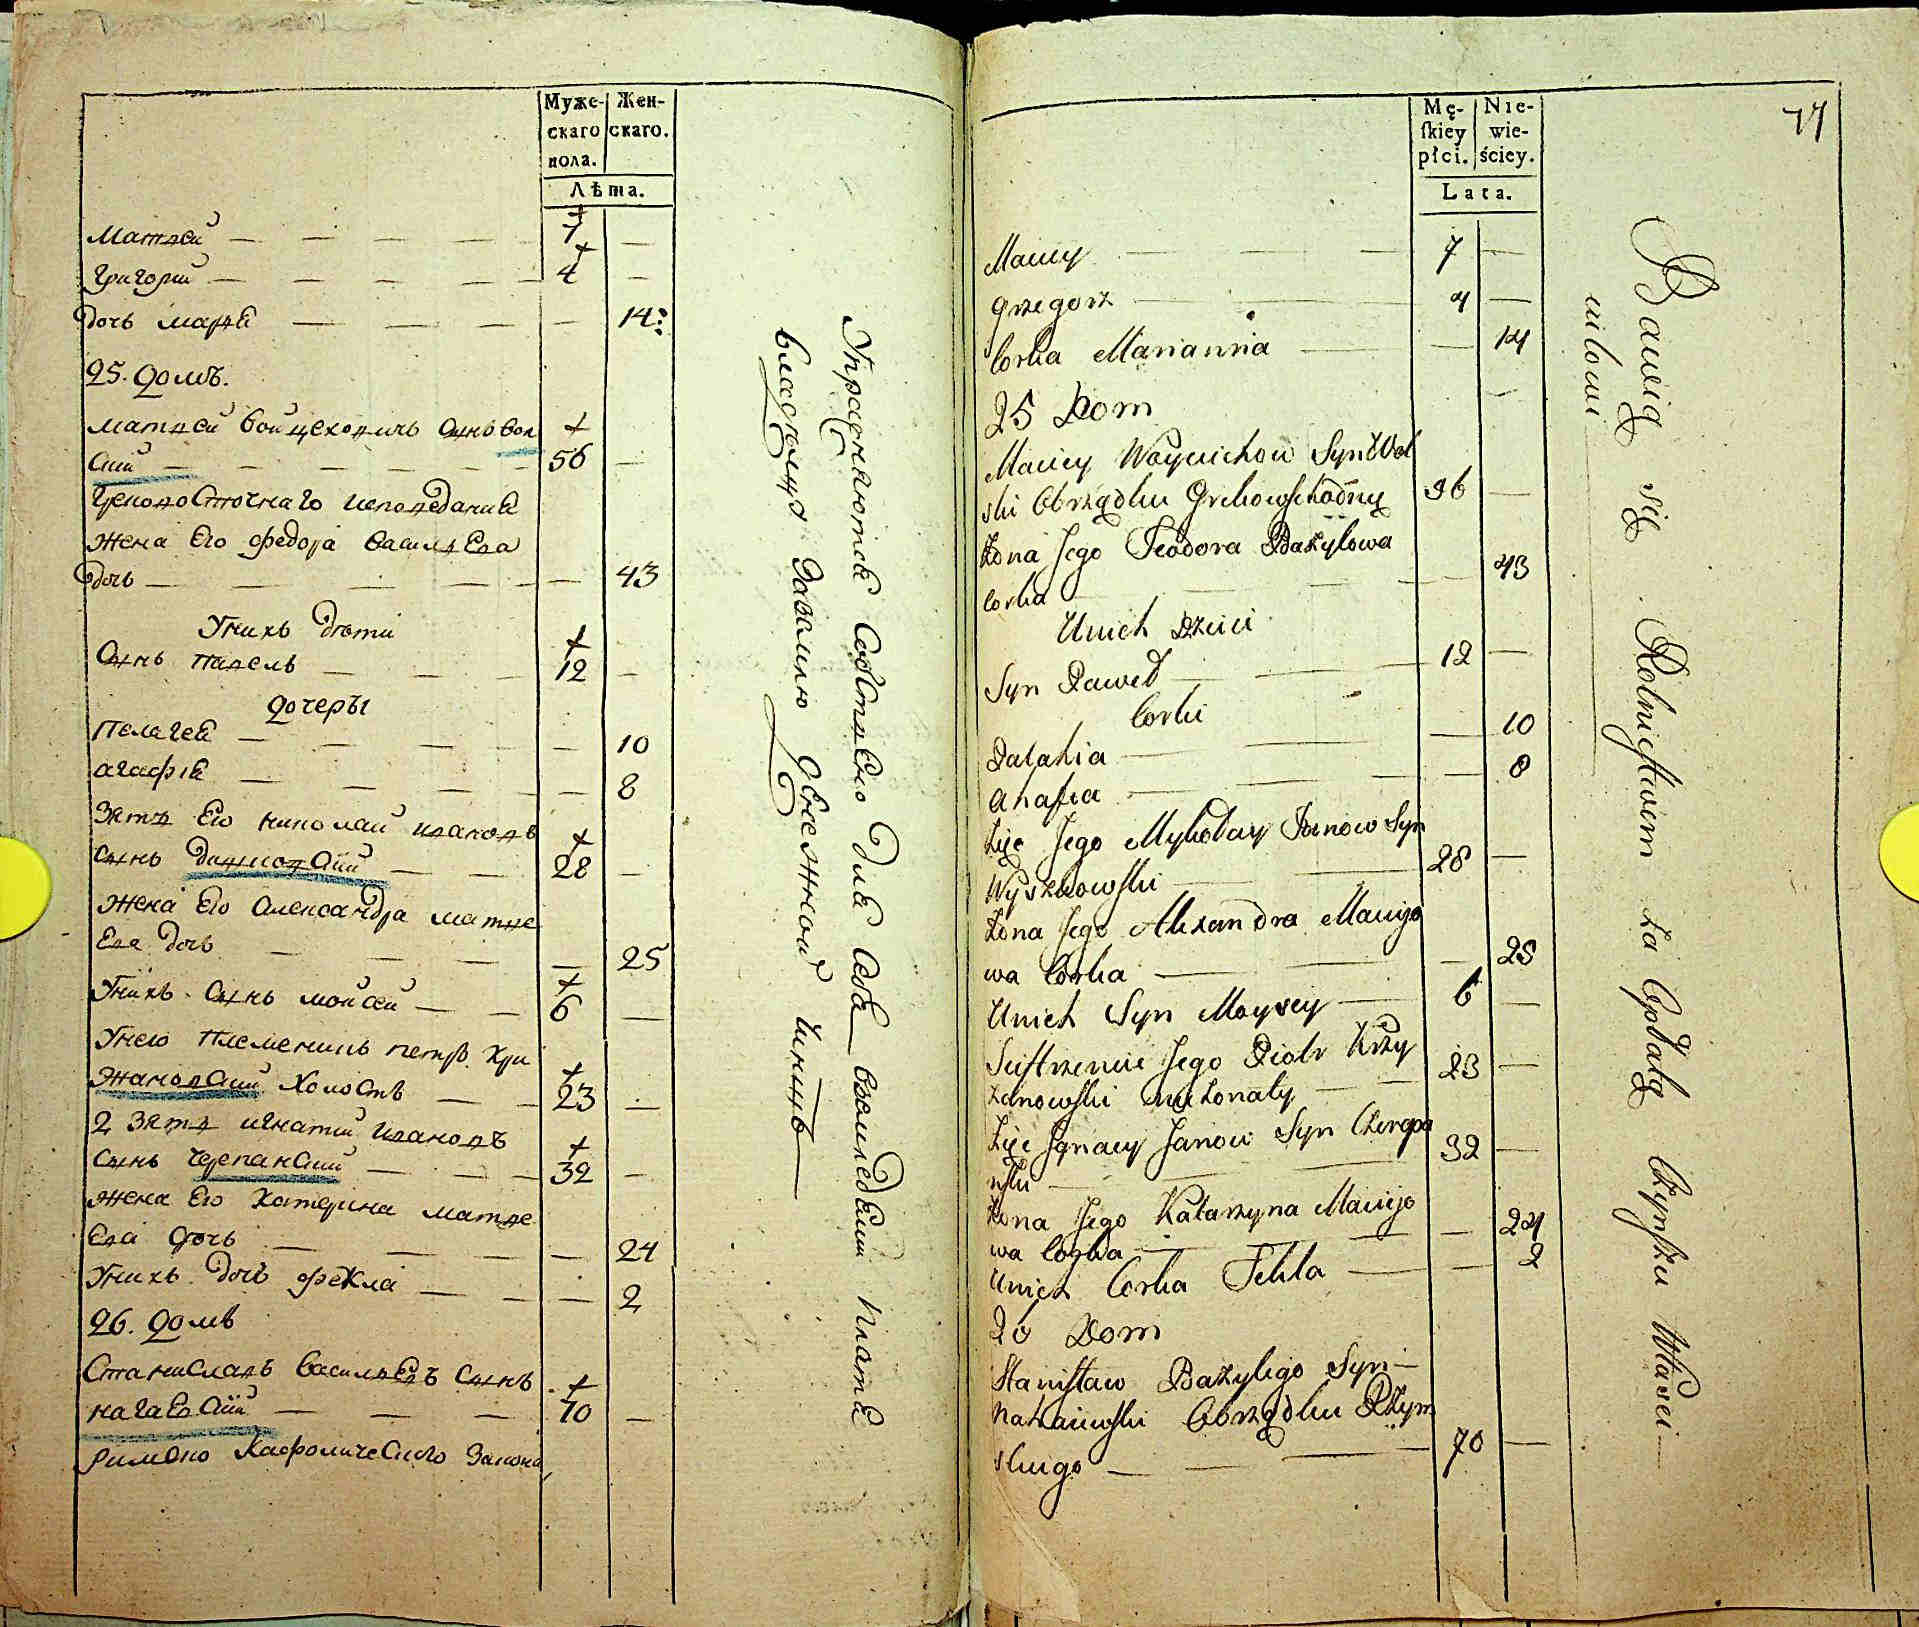 Муже- Жен-
скаго скаго.
пола.
Лѣта.
Матвей — — — — — 7 —
Григорий — — — — — 4 —
дочь Марья — — — — 14:
25. домъ.
Матвей Войцеховичъ сынъ Вол
ский — — — — — — 56 —
Грековосточнаго исповедания
Жена Его Федора Васильева
дочь — — — — — 43
Унихъ дѣти
Сынъ Павелъ — — — 12 —
дочеры
Пелагея — — — — — 10
агафия — — — — — 8
Зять Его николай ивановъ
сынъ — — 28 —
Жена Его Александра матве
Ева дочь — — — — 25
Унихъ сынъ мойсей — — 6 —
Унего племеникъ петръ Кри
жановский холостъ — — 23 —
2 Зять игнатий ивановъ
сынъ Черепанский — — — 32 —
Жена Его Катерина матве
Ева дочь — — — — — 24
Унихъ дочь фекла — — — 2
26. домъ
Станиславъ васильевъ сынъ
нагаевский — — — 70 —
римско Кафолическаго Закона
Упражняются собственно для себя воземледелии платя
владельцу Завемлю денежной чиншъ
77
Mę- Nie-
ſkiey wie-
płci. ściey.
Lata.
Maciey — — — 7 —
Grzegorz — — — 4 —
Corka Marianna — — 14
25 Dom
Maciey Woyciechow Syn Wol
ski Obrządku Grekowschodny 56 —
Żona Jego Teodora Bazylowa
Corka — — — — 43
Unich Dzieci
Syn Paweł — — — 12 —
Corki
Palahia — — — — 10
Ahafia — — — — 8
Zięć Jego Mykołay Janow Syn
Wyszkowski — — 28 —
Żona Jego Alexandra Maciejo
wa Corka — — — 25
Unich Syn Moysey — 6 —
Siestrzeniec Jego Piotr Krzy
żanowski nieżonaty — — 23 —
Zięć Jgnacy Janow Syn Czerepa
nski — — — 32 —
Żona Jego Katarzyna Maciejo
wa Corka — — — — 24
Unich Corka Tekla — — 2
26 Dom
Stanisław Bazylego Syn —
Nahaiewski Obrządku Rzym
skiego — — — 70 —
Bawią się Rolnictwem za Opłatą Czynszu Właści
cielowi